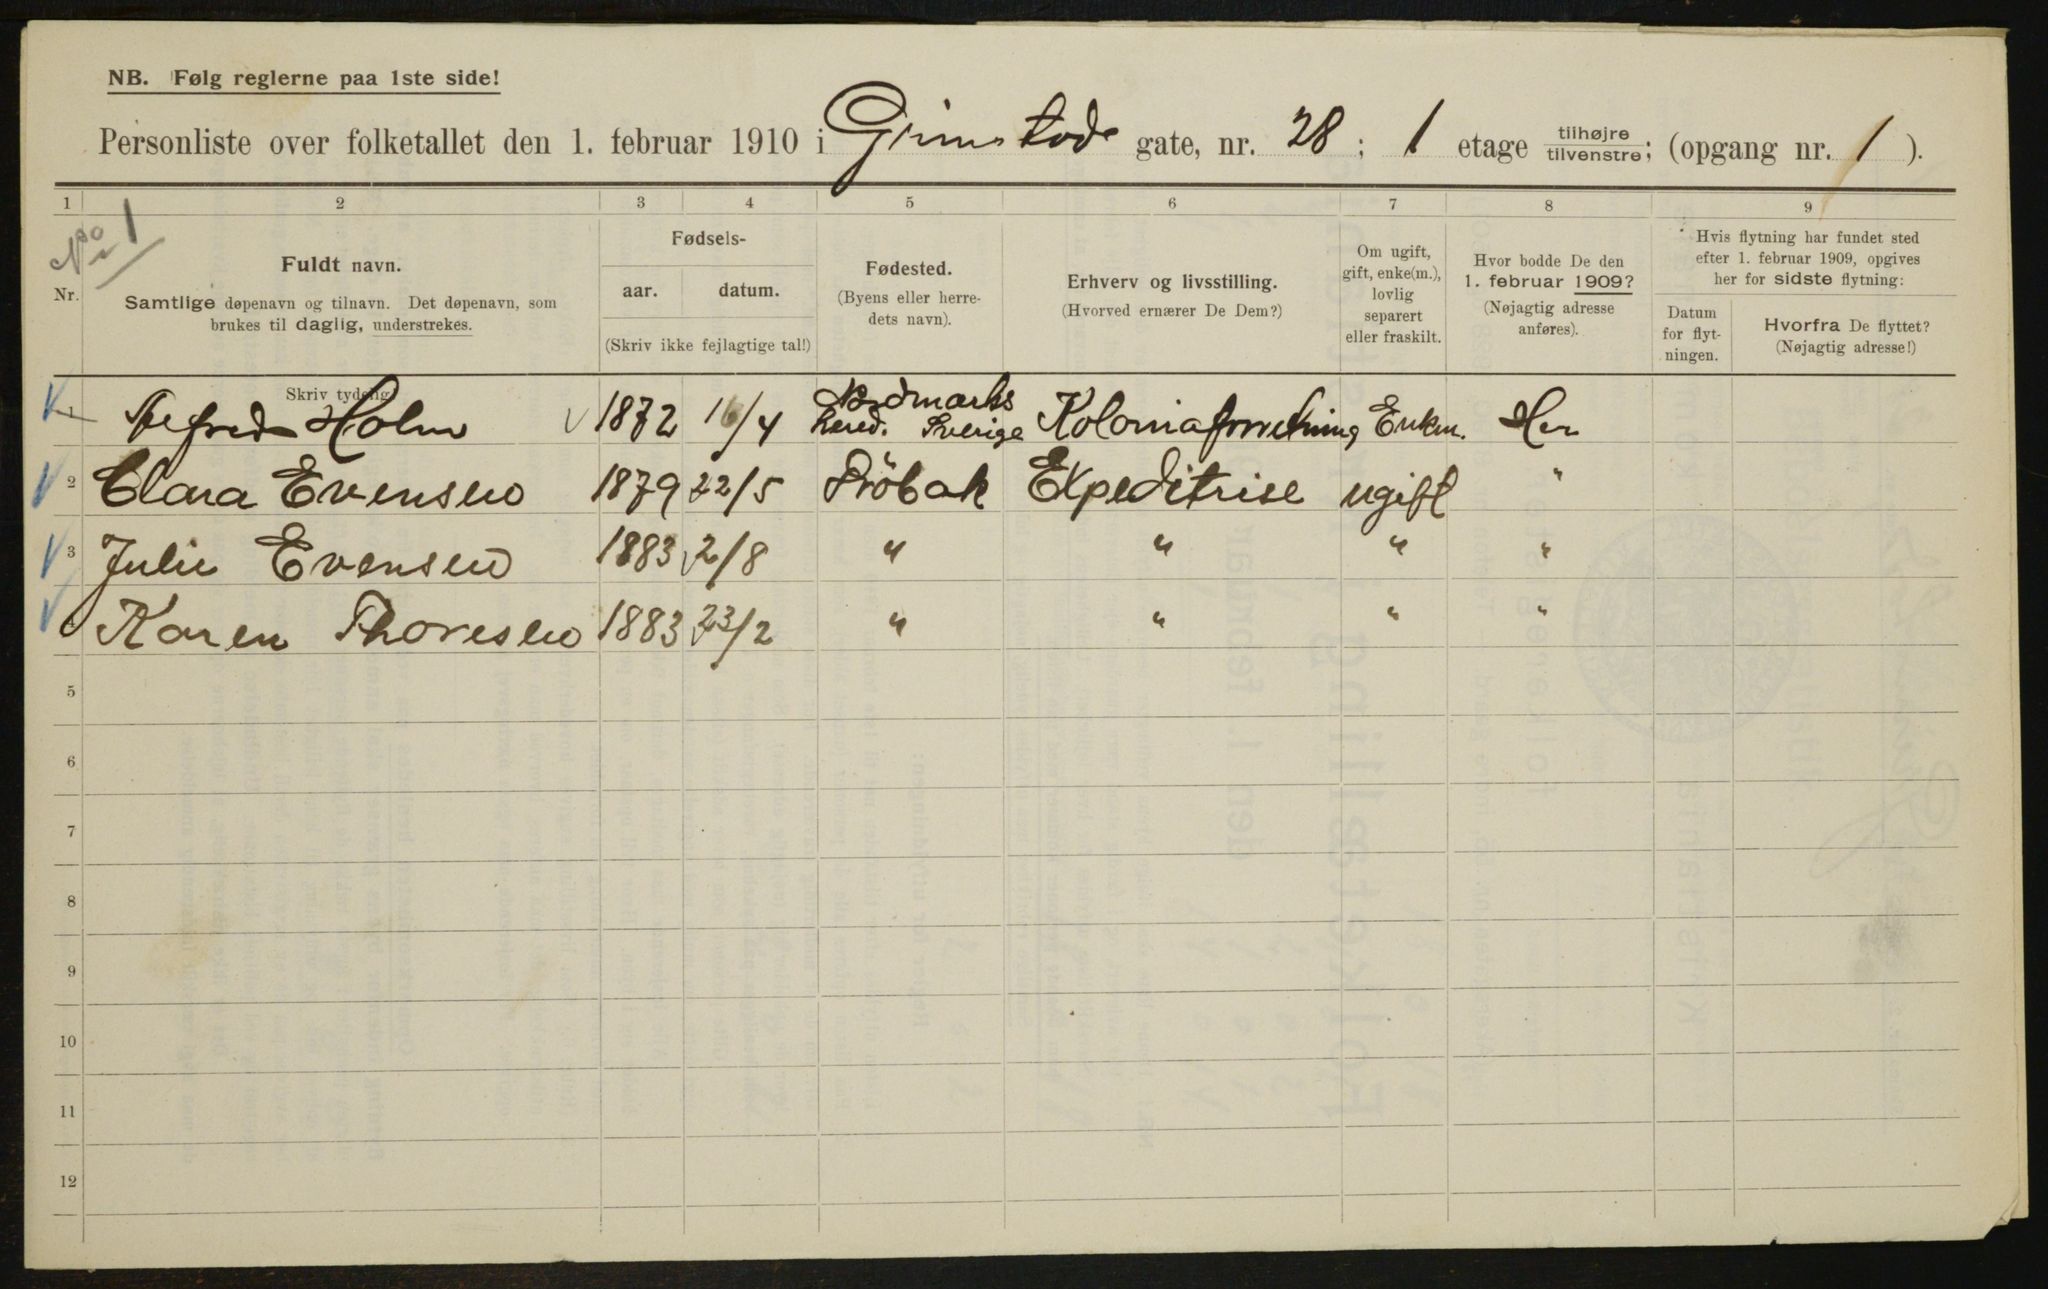 NB. Følg reglerne paa 1ste side!
Personliste over folketallet den 1. februar 1910 i Grimstads gate, nr. 28; 1 etage tilhøjre tilvenstre; (opgang nr. 1 ).
1 2 3 4 5 6 7 8 9
No 1
Nr.
Fuldt navn.
Samtlige døpenavn og tilnavn. Det døpenavn, som
brukes til daglig, understrekes.
Fødsels-
aar. datum.
(Skriv ikke fejlagtige tal!)
Fødested.
(Byens eller herre-
dets navn).
Erhverv og livsstilling.
(Hvorved ernærer De Dem?)
Om ugift,
gift, enke(m.),
lovlig
separert
eller fraskilt.
Hvor bodde De den
1. februar 1909?
(Nøjagtig adresse
anføres).
Hvis flytning har fundet sted
efter 1. februar 1909, opgives
her for sidste flytning:
Datum
for flyt-
ningen.
Hvorfra De flyttet?
(Nøjagtig adresse!)
Skriv tydelig
1 Alfred Holm 1872 16/4 Nordmarks Hered. Sverige Koloniaforretning Enkm. Her
2 Clara Evensen 1879 22/5 Dröbak Expeditrise ugift "
3 Julie Evensen 1883 2/8 " " " "
4 Karen Thoresen 1883 23/2 " " " "
5
6
7
8
9
10
11
12